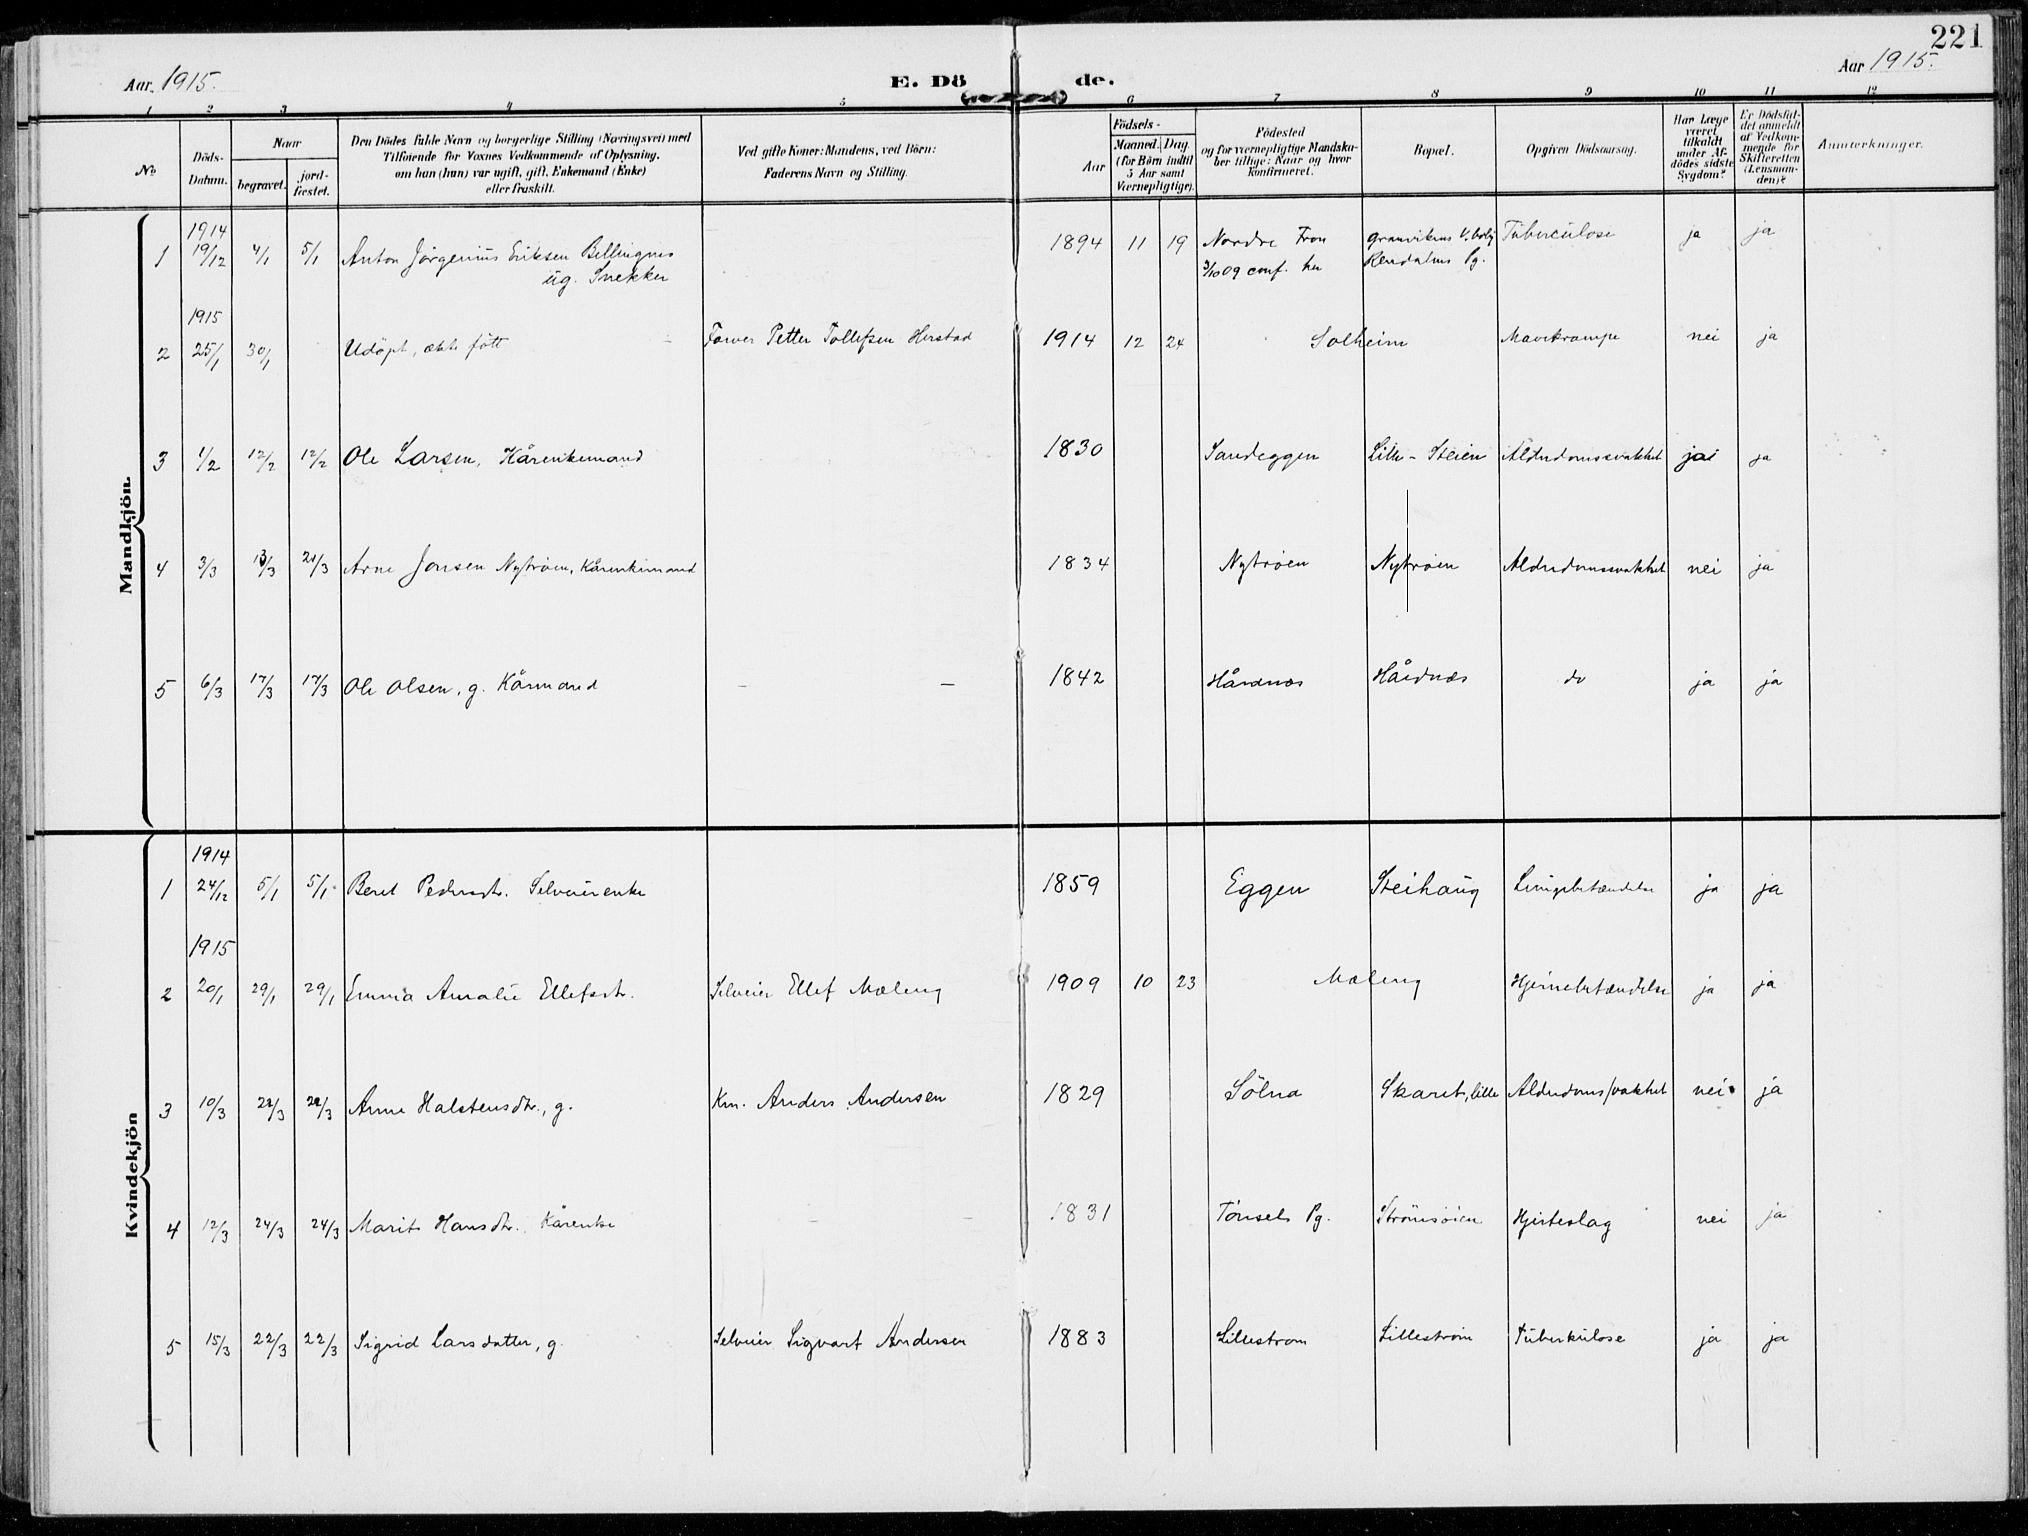 221
Aar 1915. E. Dö de. Aar 1915.
1 2 3 4 5 6 7 8 9 10 11 12
No
Döds-
Datum.
Naar
begravet.
jord-
fæstet.
Den Dödes fulde Navn og borgerlige Stilling (Næringsvei) med
Tilföiende for Voxnes Vedkommende af Oplysning,
om han (hun) var ugift, gift, Enkemand (Enke)
eller fraskilt.
Ved gifte Koner: Mandens, ved Börn:
Faderens Navn og Stilling.
Födsels-
Aar
Maaned. Dag.
(for Börn indtil
5 Aar samt
Værnepligtige).
Födested
og for værnepligtige Mandska-
ber tillige: Naar og hvor
konfirmeret.
Bopæl.
Opgiven Dödsaarsag.
Har Læge
været
tilkaldt
under Af-
dödes sidste
Sygdom?
Er Dödsfal-
det anmeldt
af Vedkom-
mende for
Skifteretten
(Lensman-
den)?
Anmærkninger.
Mandkjön.
1914
1 19/12 4/1 5/1 Anton Jörgenius Eriksen Billingnes 1894 11 19 Nordre Fron Tuberculose ja ja
ug. Snekker 3/10 09 conf. her Rendalens Pg.
1915
2 25/1 30/1 Udöpt, ækte fött Farver Petter Tollefsen Herstad 1914 12 24 Solheim Mavekrampe nei ja
3 1/2 12/2 12/2 Ole Larsen, Kårenkemand 1830 Sandeggen Lille-Steien Alderdomssvakhet ja ja
4 3/3 13/3 21/3 Arne Jonsen Nytröien, Kårenkemand 1834 Nytröen Nytröien Alderdomssvakhet nei ja
5 6/3 17/3 17/3 Ole Olsen, g. Kårmand - - 1842 Hårdnæs Hårdnæs do ja ja
Kvindekjön
1914
1 24/12 5/1 5/1 Beret Pedersdtr. Selveierenke 1859 Eggen Steihaug Lungebetændelse ja ja
1915
2 20/1 29/1 29/1 Emma Amalie Ellefsdtr. Selveier Ellef Mæleng 1909 10 23 Mæleng Hjernebetændelse ja ja
3 10/3 22/3 22/3 Anne Halstensdtr., g. Km. Anders Andersen 1829 Sölna Skaret, lille Alderdomssvakhet nei ja
4 12/3 24/3 24/3 Marit Hansdtr. Kårenke - - 1831 Tönsets Pg. Strömsöien Hjerteslag nei ja
5 15/3 22/3 22/3 Sigrid Larsdatter, g. Selveier Sigvart Andersen 1883 Lilleström Lilleström Tuberkulose ja ja